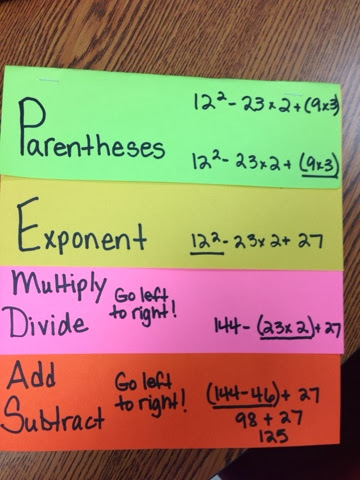 12² - 23 x 2 + (9x3)
Parentheses
12² - 23 x 2 + (9x3)
Exponent
12² - 23 x 2 + 27
Multiply
Divide
Go left
to right!
144 - (23 x 2) + 27
Add
Subtract
Go left
to right!
(144 - 46) + 27
98 + 27
125